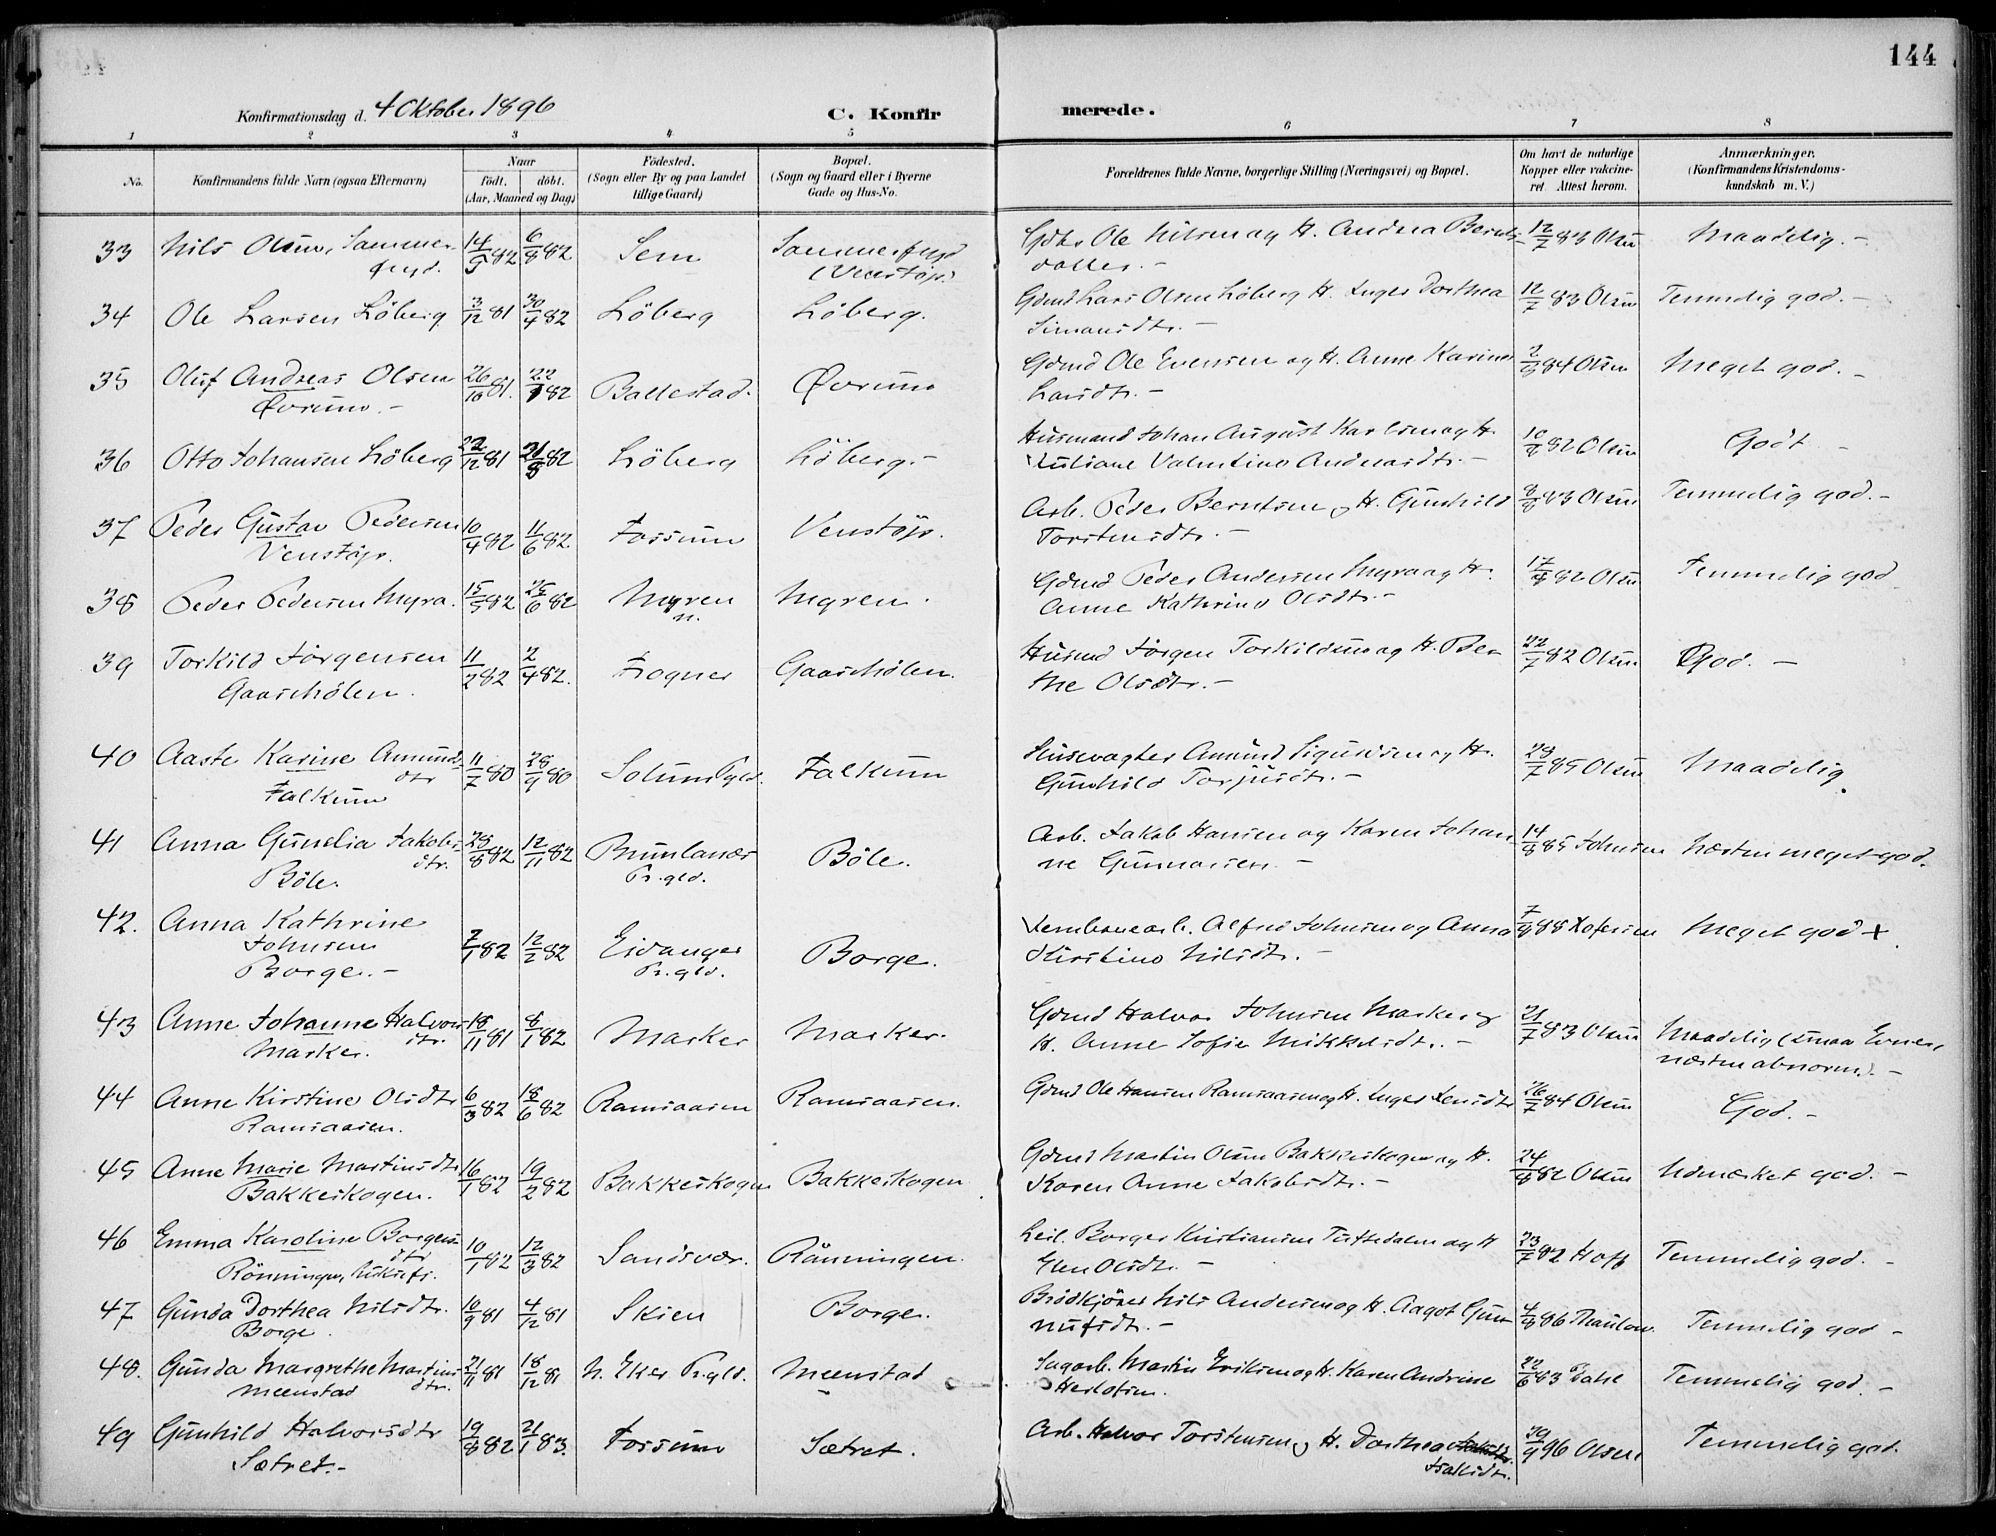 144
Konfirmationsdag d. 4 Oktober 1896
C. Konfirmerede.
1 2 3 4 5 6 7 8
No.
Konfirmandens fulde Navn (ogsaa Efternavn)
Naar
födt. döbt.
(Aar, Maaned og Dag)
Födested.
(Sogn eller By og paa Landet
tillige Gaard)
Bopæl.
(Sogn og Gaard eller i Byerne
Gade og Hus-No.
Forældrenes fulde Navne, borgerlige Stilling (Næringsvei) og Bopæl.
Om havt de naturlige
Kopper eller vakcine-
ret Attest herom.
Anmærkninger.
(Konfirmandens Kristendoms-
kundskab m. V.)
33 Nils Olsen, Sommer- 14/5 82 6/8 82 Sem Sommerfryd Gdbr Ole Nilsen og H. Andrea Bernts- 12/7 83 Olsen Maadelig. -
fryd. (Venstöp) datter. -
34 Ole Larsen Löberg 3/12 81 30/4 82 Löberg Löberg. Gdmd Lars Olsen Löberg H. Inger Dorthea 12/7 83 Olsen Temmelig god. -
Simonsdtr. -
35 Oluf Andreas Olsen 26/10 81. 22/1 82 Ballestad. Øvrum Gdmd Ole Evensen og H. Anne Karine 2/8 84 Olsen Meget god. -
Øvrum. - Larsdtr. -
36 Otto Johansen Löberg 22/12 81 21/5 82 Löberg Löberg. - Husmand Johan August Karlsen og H. 10/8 82 Olsen Godt -
Juliane Valentine Andersdtr. -
37 Peder Gustav Pedersen 10/4 82 11/6 82. Fossum Venstöp. Arb. Peder Berntsen og H. Gunhild 8/8 83 Olsen Temmelig god. -
Venstöp. Torstensdtr. -
38 Peder Pedersen Myra. 15/5 82 25/6 82 Myren Myren. Gdmd Peder Andersen Myra og H. 17/8 82 Olsen Temmelig god
n. Anne Kathrine Olsdtr. -
39 Torkild Jörgensen 11/2 82 2/4 82. Fogner Gaasehölen. Husmd Jörgen Torkildsen og H. Ber 22/7 82 Olsen God. -
Gaasehölen. the Olsdtr. -
40 Aaste Karine Amunds- 11/7 80 28/9 80 Solum Pgld. Falkum Husevagter Amund Sigurdsen og H. 28/7 85 Olsen Maadelig.
dtr Gunhild Torjusdtr. -
Falkum
41 Anna Gunelia Jakobs- 28/8 82 12/11 82 Brunlanæs Böle. Arb. Jakob Hansen og Karen Johan 14/8 85 Johnsen Næsten meget god.
dtr. Pr.gld. ne Gunnarsen. -
Böle.
42. Anna Kathrine 7/1 82 12/2 82 Eidanger Borge. Jernbanearb. Alfred Johnsen og Anna 7/9 88 Meget god +
Johnsen Pr.gld. Kirstine Nilsdtr. -
Borge. -
43 Anne Johanne Halvors 18/11 81 8/1 82 Marker Marker. Gdmd Halvor Johnsen Marker og 21/7 83 Olsen Maadelig (smaa Evner,
dtr. H. Anne Sofie Mikkelsdtr. - næsten abnorm). -
Marker.
44 Anne Kirstine Olsdtr 6/3 82 18/6 82 Ramsaasen Ramsaasen. Gdmd Ole Hansen Ramsaasen og H. Inger Jensdtr 26/7 84 Olsen God. -
Ramsaasen.
45 Anne Marie Martinsdtr 16/1 82 19/2 82 Bakkeskogen Bakkeskogen Gdmd Martin Olsen Bakkeskogen og H. 24/8 82 Olsen Udmærket god. -
Bakkeskogen. Karen Anne Jakobsdtr. -
46 Emma Karoline Borgers- 10/1 82 12/3 82 Sandsvær. Rönningen. Leil. Borger Kristiansen Tuftedalen og H 23/7 82 Hoff Temmelig god. -
dtr Elen Olsdtr. -
Rönningen,
47 Gunda Dorthea Nilsdtr. 10/9 81 4/12 81 Skien Borge. Brödkjörer Nils Andersen og H. Aagot Gun 4/8 86 Thaulow. Temmelig god -
Borge. nufsdtr. -
48. Gunda Margrethe Martins 21/11 81 18/12 81 N. Eker Pr.gld. Meenstad Sagarb. Martin Eriksen og H. Karen Andrine 22/6 83 Dahl Temmelig god. -
Meenstad dtr. Herlofsen.
49 Gunhild Halvorsdtr 19/8 82 21/1 83. Fossum Sætret. Arb. Halvor Torstensen og H. Dorthea 30/9 96 Olsen Temmelig god.
Sætret. - Isaksdtr.